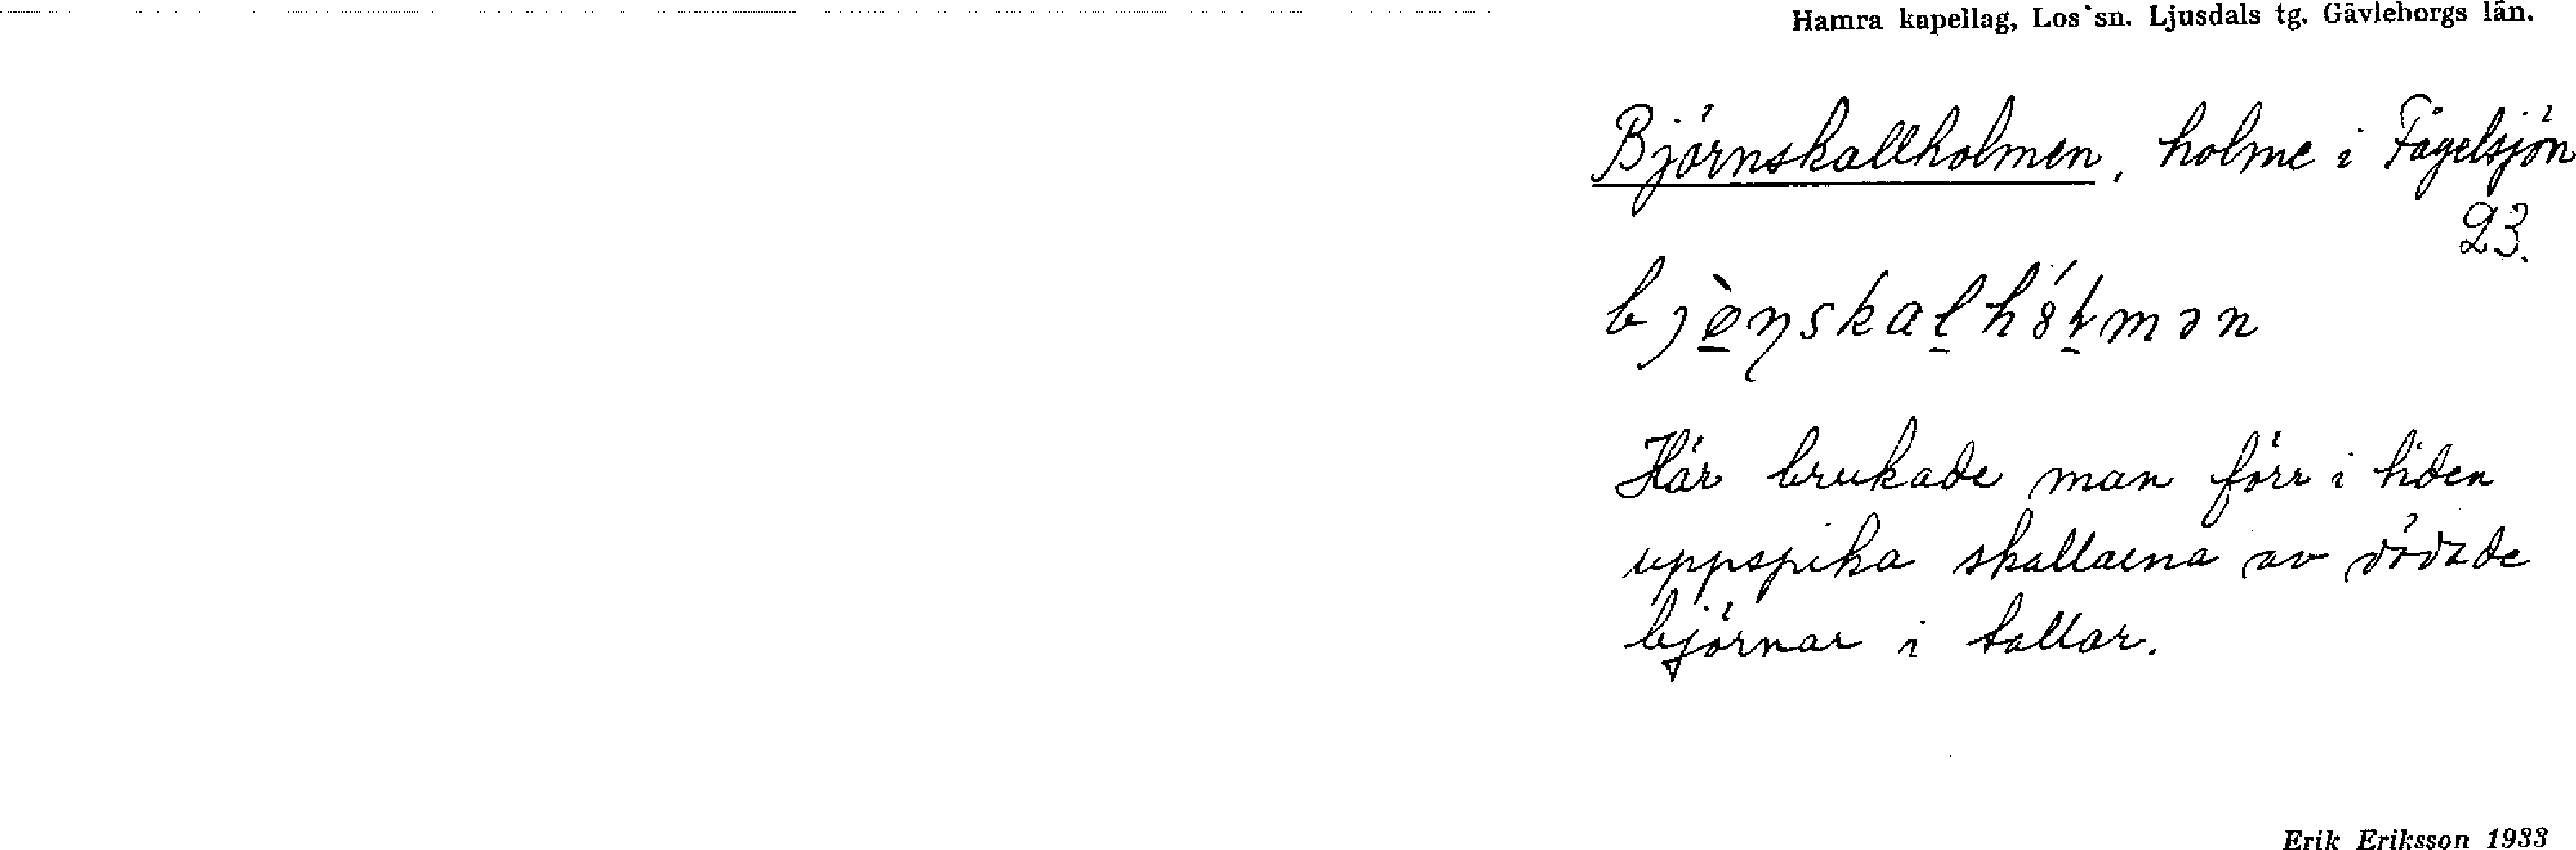 Hamra kapellag, Los sn. Ljusdals tg. Gävleborgs län.
Björnskallholmen, holme i Fågelsjön
23.
Här brukade man förr i tiden
uppspika skallarna av dödade
björnar i tallar.
Erik Eriksson 1933